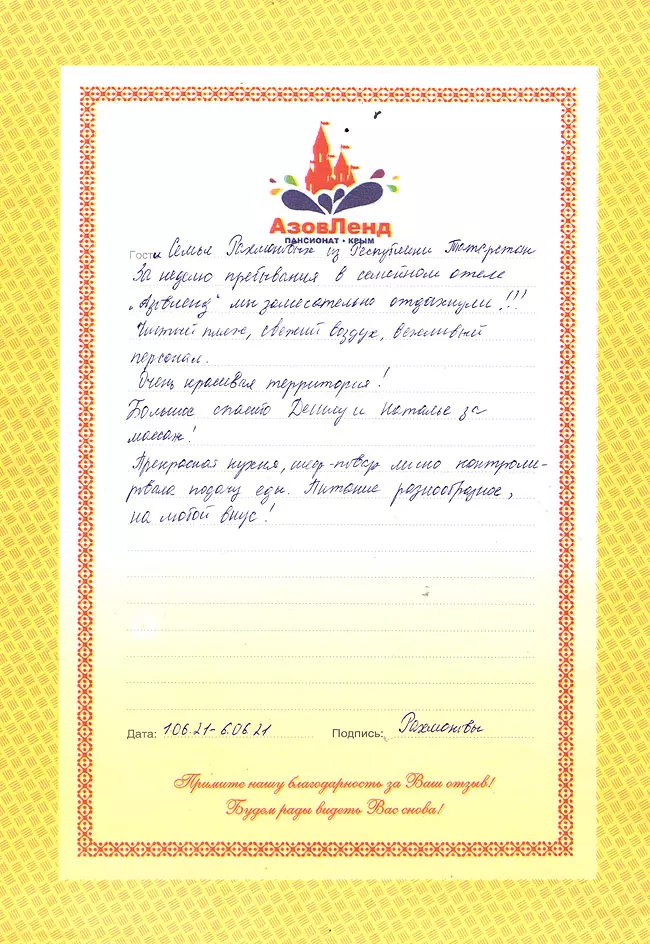 АзовЛенд
ПАНСИОНАТ • КРЫМ
Гости Семья Рахмановых из Республики Татарстан
За неделю пребывания в семейном отеле
„Азовленд" мы замечательно отдохнули!!!
Чистый пляж, свежий воздух, вежливый
персонал.
Очень красивая территория!
Большое спасибо Денису и Наталье за
массаж!
Прекрасная кухня, шеф-повар лично контроли-
ровала подачу еды. Питание разнообразное,
на любой вкус!
Дата: 1.06.21-6.06.21 Подпись: Рахмановы
Примите нашу благодарность за Ваш отзыв!
Будем рады видеть Вас снова!